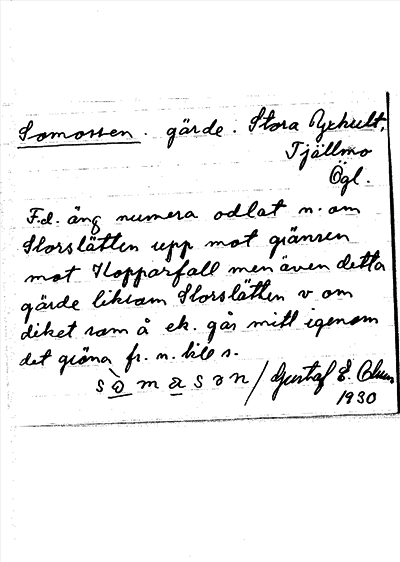 Somossen. gärde. Stora Ryckult,
Tjällmo
Ögl.
F.d. äng numera odlat n. om
Storslätten upp mot gränsen
mot Kopparfall men även detta
gärde liksom Storslätten v om
diket som å ek. går mitt igenom
det gröna fr. n. till s.
sò̱ m a̱ s ɔ n / Gustaf E.
1930